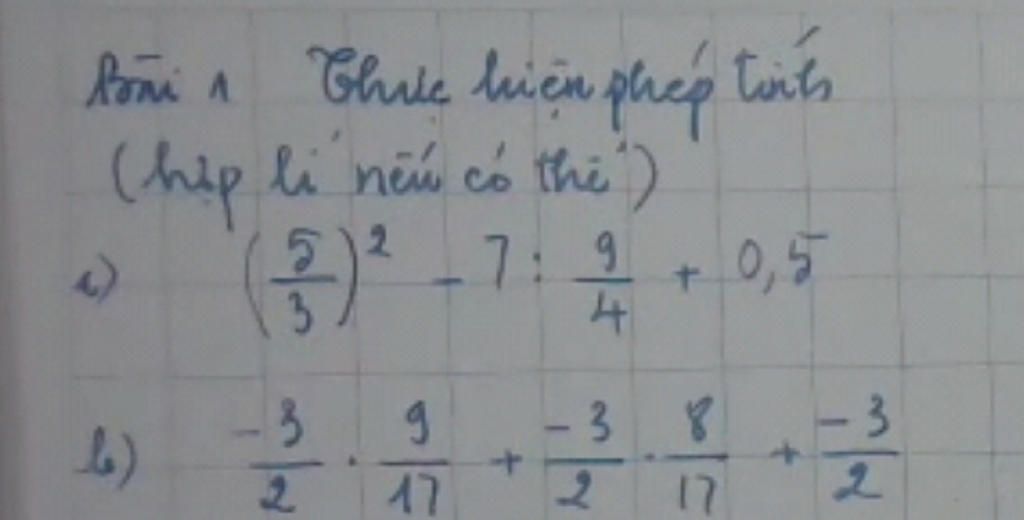 Bài 1 Thực hiện phép tính
(hợp lí nếu có thể)
a) (5/3)² - 7 : 9/4 + 0,5
b) -3/2 . 9/17 + -3/2 . 8/17 + -3/2